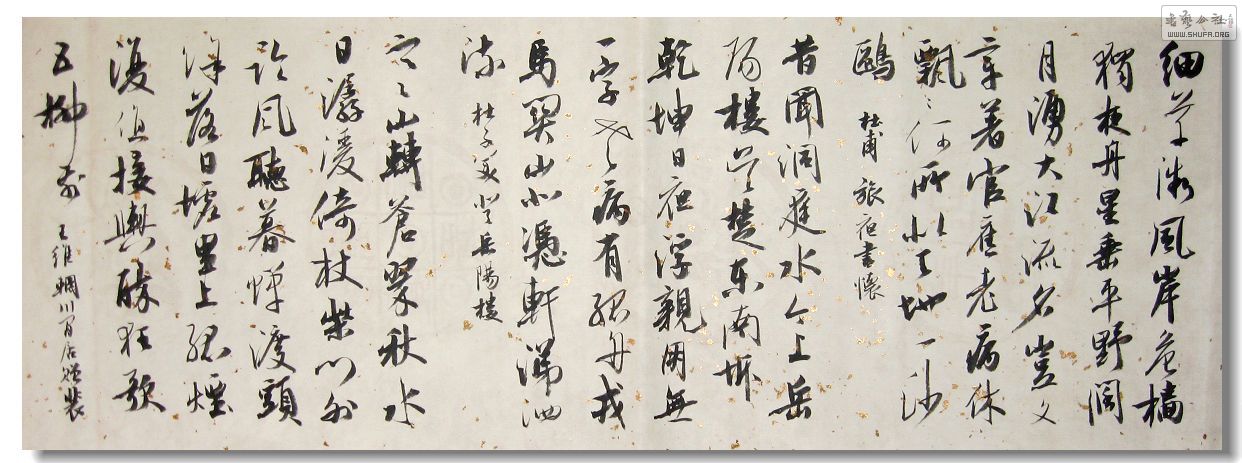 細草微風岸危檣
獨夜舟星垂平野闊
月湧大江流名豈文
章著官應老病休
飄〻何所似天地一沙
鷗 杜甫 旅夜書懷
昔聞洞庭水今上岳
陽樓吳楚東南坼
乾坤日夜浮親朋無
一字老病有孤舟戎
馬關山北憑軒涕泗
流 杜子美 登岳陽樓
寒山轉蒼翠秋水
日潺湲倚杖柴門外
臨風聽暮蟬渡頭
餘落日墟里上孤煙
復值接輿醉狂歌
五柳前 王維輞川閒居贈裴
書藝公社
WWW.SHUFA.ORG